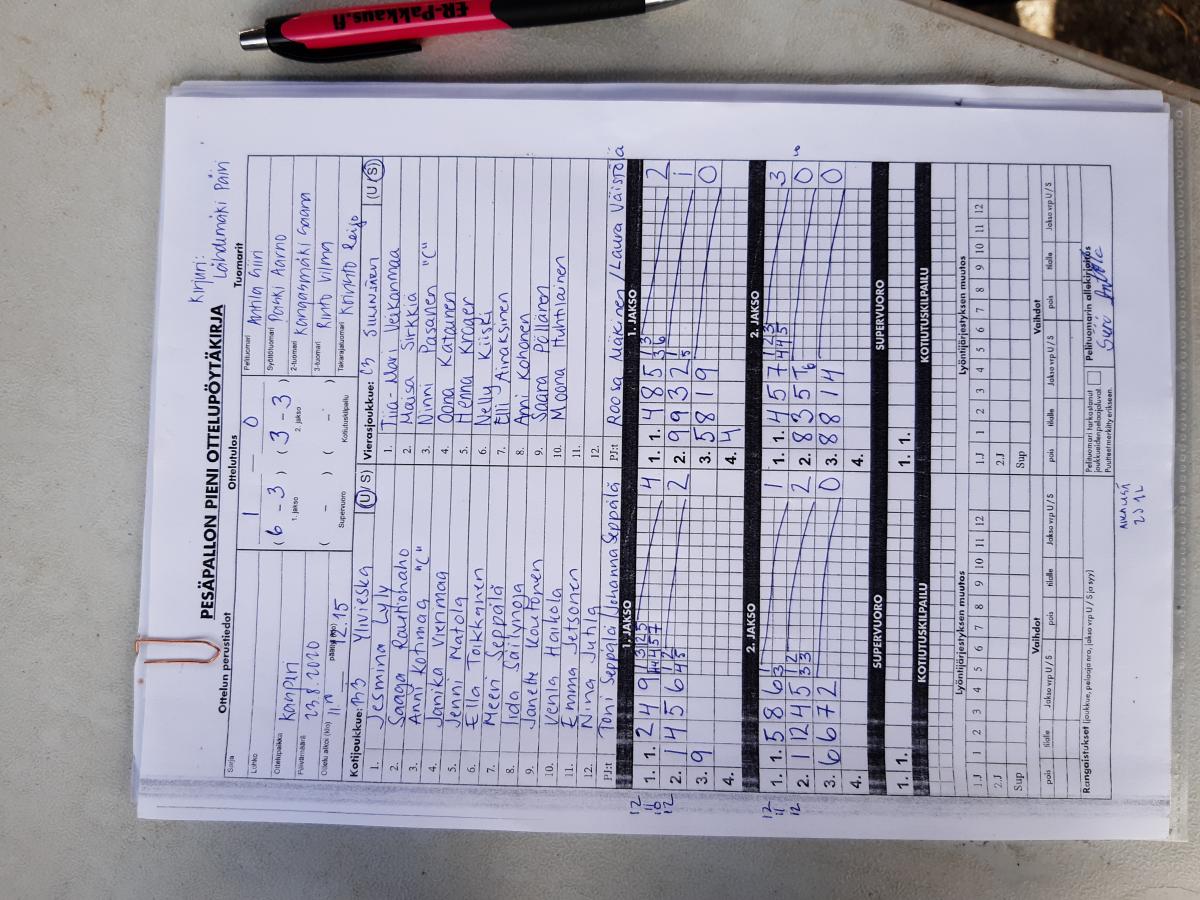 ER-Pakkaus.fi
Kirjuri:
Lähdimäki Päivi
PESÄPALLON PIENI OTTELUPÖYTÄKIRJA
Ottelun perustiedot
Ottelutulos
Tuomarit
Sarja
Lohko
Ottelupaikka Kaupun
Päivämäärä 23.8.2020
Ottelu alkoi (klo) 11 päättyi (klo) 12.15
1 — 0
( 6 - 3 ) ( 3 - 3 )
1. jakso 2. jakso
( - ) ( - )
Supervuoro Kotiutuskilpailu
Pelituomari Anttila Siiri
Syöttötuomari Poski Aarno
2-tuomari Kangasmäki Saara
3-tuomari Rinto Vilma
Takarajatuomari Koivunto Reijo
Kotijoukkue: B3 Ylivieska (U / S)
1. Jesmina Lyly
2. Saaga Rautiohaho
3. Anni Kotimaa "C"
4. Janika Vierimaa
5. Jenni Matola
6. Ella Toikkanen
7. Meeri Seppälä
8. Iida Säilynoja
9. Janette Koutonen
10. Venla Haikola
11. Emma Jetsonen
12. Ninna Jutila
PJ:t Toni Seppälä / Johanna Seppälä
Vierasjoukkue: B3 Siuntinen (U / S)
1. Tiia-Mari Veikanmaa
2. Maisa Sirkkiä
3. Ninni Pasanen "C"
4. Oona Katainen
5. Henna Kröger
6. Nelly Kiiski
7. Elli Ainaksinen
8. Anni Kohonen
9. Saara Pöllänen
10. Moona Huhtiainen
11.
12.
PJ:t Roosa Mäkinen / Laura Väistölä
1. JAKSO 1. JAKSO
1. 1. 2 4 9 4
2. 1 4 5 6 2
3. 9
4.
1. 1. 4 8 5 2
2. 9 9 3 2 1
3. 5 8 1 9 0
4. 4
2. JAKSO 2. JAKSO
1. 1. 5 8 6 1
2. 1 2 4 5 2
3. 6 6 7 2 0
4.
1. 1. 4 5 7 3
2. 8 3 5 0
3. 8 8 1 4 0
4.
SUPERVUORO SUPERVUORO
1. 1. 1. 1.
KOTIUTUSKILPAILU KOTIUTUSKILPAILU
Lyöntijärjestyksen muutos Lyöntijärjestyksen muutos
1.J 1 2 3 4 5 6 7 8 9 10 11 12
2.J
Sup
1.J 1 2 3 4 5 6 7 8 9 10 11 12
2.J
Sup
Vaihdot Vaihdot
pois tilalle Jakso vrp U / S pois tilalle Jakso vrp U / S
pois tilalle Jakso vrp U / S pois tilalle Jakso vrp U / S
Rangaistukset (joukkue, pelaaja nro, jakso vrp U / S ja syy)
Pelituomari tarkastanut
joukkueiden pelaajaluvat
Puutteet merkitty erikseen
Pelituomarin allekirjoitus
Siiri Anttila